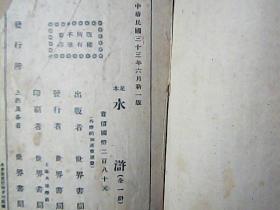 中華民國三十三年六月新一版
足本 水滸（全一册）
實價國幣二百八十元
（外埠酌加運費匯費）
出版者 世界書局
發行者 世界書局
印刷者 世界書局
發行所 世界書局
版權所有
不准翻印
上海及各省